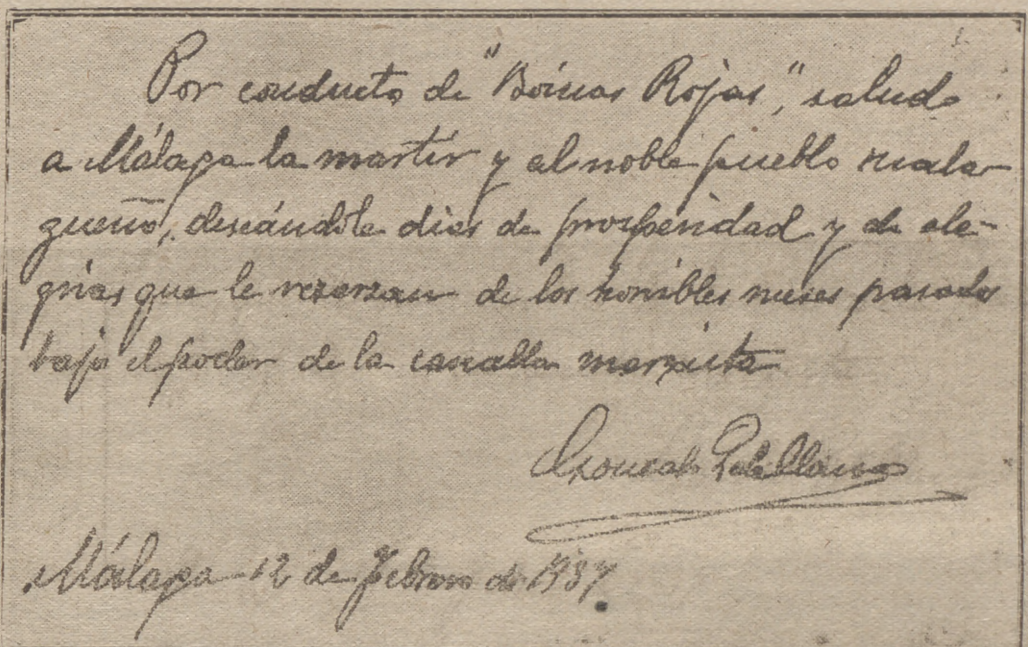 Por conducto de "Boinas Rojas", saludo
a Málaga la martir y al noble pueblo mala-
gueño, deseándole dias de prosperidad y de ale-
grias que le resarzan de los horribles meses pasados
bajo el poder de la canalla marxista
Gonzalo Q de Llano
Málaga 12 de Febrero de 1937.